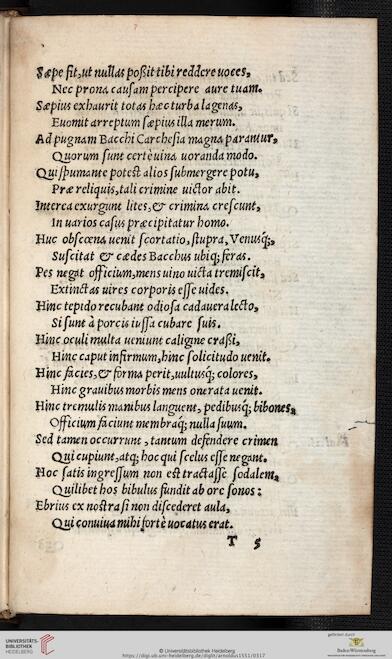 Sæpe fit, ut nullas poßit tibi reddere uoces,
Nec prona causam percipere aure tuam.
Sæpius exhaurit totas hæc turba lagenas,
Euomit arreptum sæpius illa merum.
Ad pugnam Bacchi Carchesia magna parantur,
Quorum sunt certè uina uoranda modo.
Qui spumante potest alios submergere potu,
Præ reliquis, tali crimine uictor abit.
Interea exurgunt lites, & crimina crescunt,
In uarios casus præcipitatur homo.
Huc obscœna uenit scortatio, stupra, Venusq;,
Suscitat & cædes Bacchus ubiq; feras.
Pes negat officium, mens uino uicta tremiscit,
Extinctas uires corporis esse uides.
Hinc tepido recubant odiosa cadauera lecto,
Si sunt à porcis iussa cubare suis.
Hinc oculi multa ueniunt caligine craßi,
Hinc caput infirmum, hinc solicitudo uenit.
Hinc facies, & forma perit, uultusq; colores,
Hinc grauibus morbis mens onerata uenit.
Hinc tremulis manibus languent, pedibusq; bibones,
Officium faciunt membraq; nulla suum.
Sed tamen occurrunt, tantum defendere crimen
Qui cupiunt, atq; hoc qui scelus esse negant.
Hoc satis ingressum non est tractasse sodalem,
Quilibet hos bibulus fundit ab ore sonos:
Ebrius ex nostra si non discederet aula,
Qui conuiua mihi fortè uocatus erat.
T 5
UNIVERSITÄTS-
BIBLIOTHEK
HEIDELBERG
© Universitätsbibliothek Heidelberg
https://digi.ub.uni-heidelberg.de/diglit/arnoldus1551/0317
gefördert durch
Baden-Württemberg